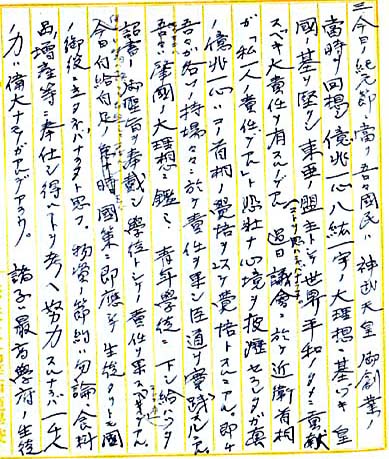 三、今日ノ紀元節ニ當リ吾々國民ハ神武天皇御創業ノ
當時ヲ回想シ億兆一心八紘一宇ノ大理想ニ基ヅキ皇
國ノ基ヲ堅クシ東亜ノ盟主トシテ世界平和ノタメニ貢献
スベキ大責任ヲ有スルノデアル 過日議會ニ於テ近衛首相
ガ「私一人ノ責任デアル」ト悲壮ナ心境ヲ披瀝セラレタガ萬
億兆一心ハコノ首相ノ覺悟ヲ 覺悟トスルニアル。即チ
吾々ガ各〃ノ持場々々ニ於テ責任ヲ果シ臣道ヲ實践スルニアル。
吾々ハ肇國ノ大理想ニ鑑ミ 青年學徒ニ下シ給ハツタ
詔書ノ御聖旨ヲ奉戴シ學徒トシテノ責任ヲ果スベキデアル。
今日自給自足ノ 時國策ニ即應シテ生徒タリトモ國
ノ御役ニ立タネバナラヌト思フ。物資ノ節約ハ勿論、食料
品ノ増産等ニ奉仕シ得ルコトヲ考ヘ努力スルナラバ一千人
ノ力ハ偉大ナモノガアルデアラウ。 諸子ハ最高學府ノ生徒